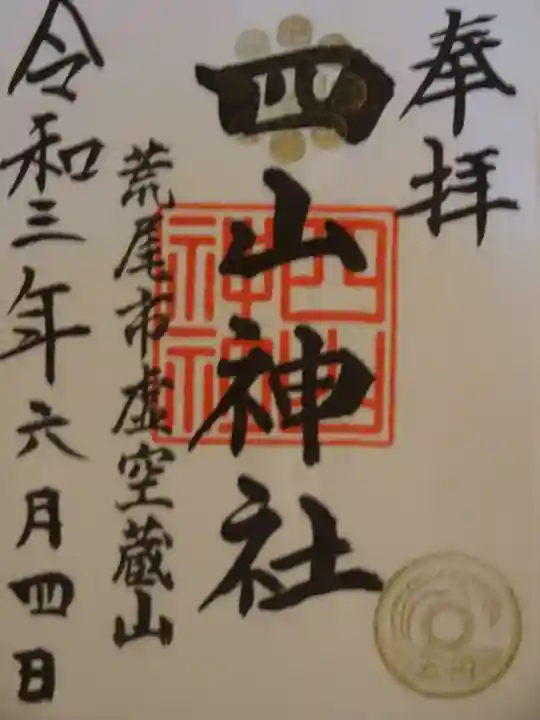 奉拝
四山神社
四山
神社
荒尾市虚空蔵山
令和三年六月四日
五円